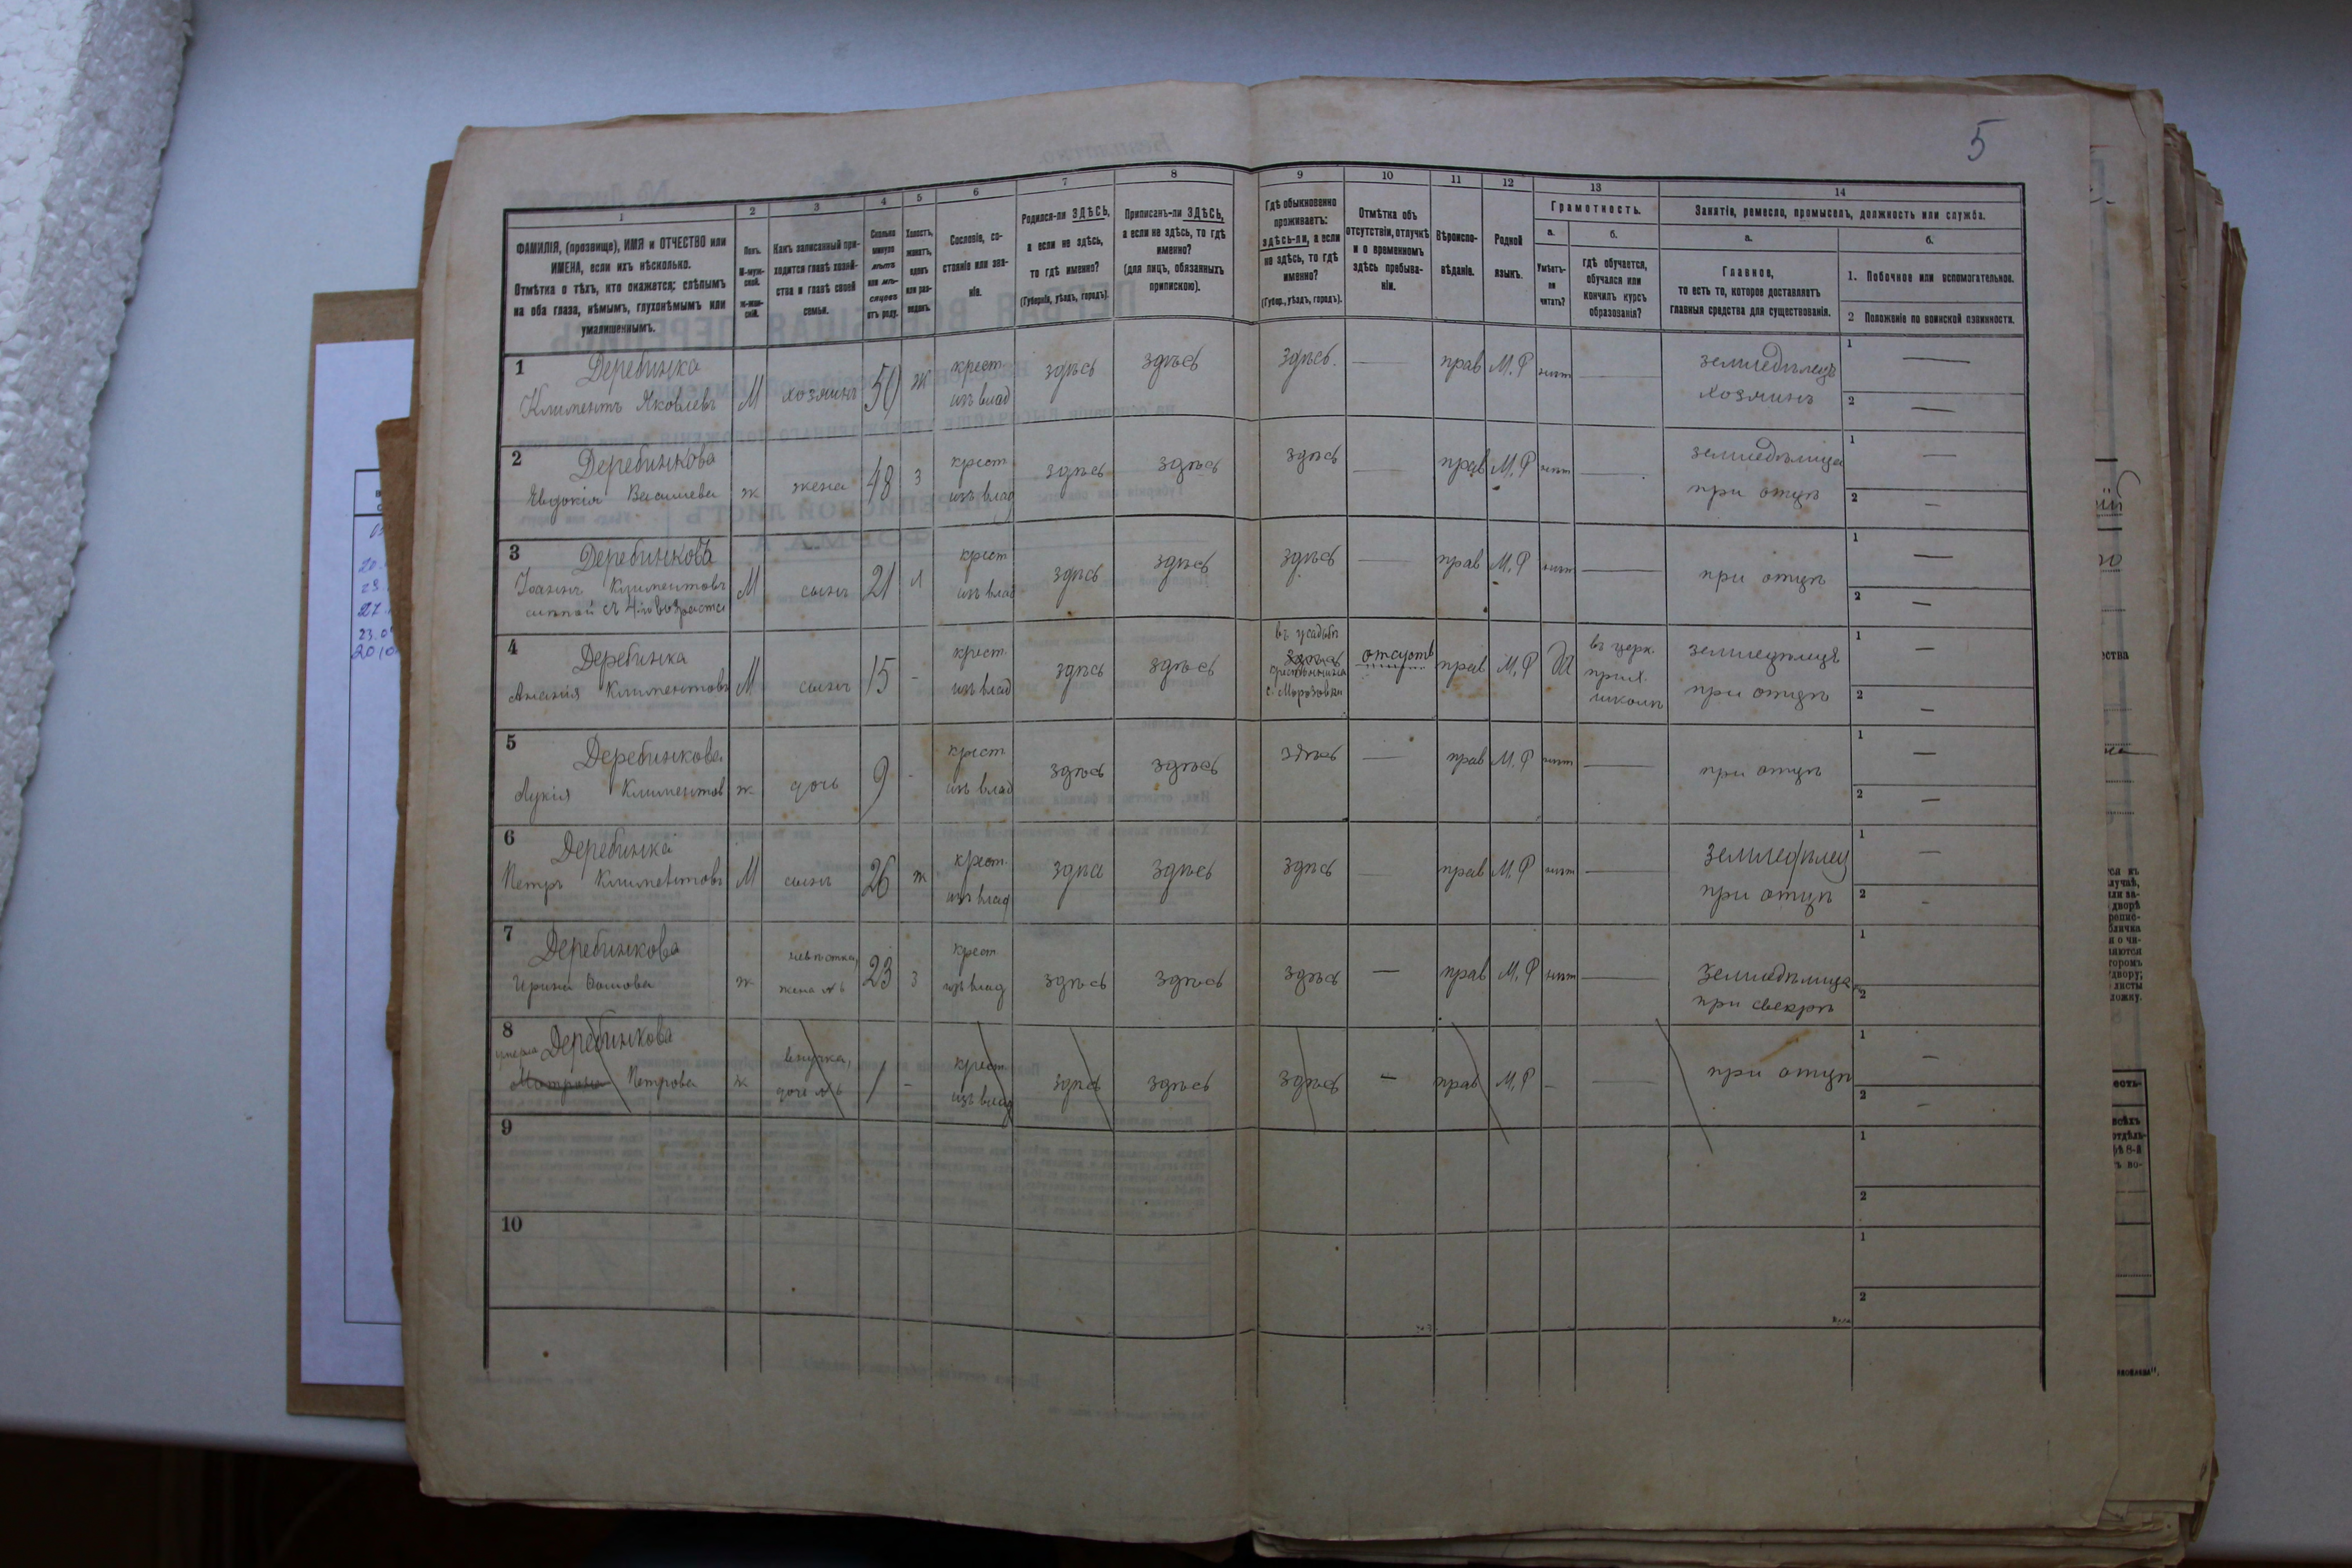 5
1 2 3 4 5 6 7 8 9 10 11 12 13 14
ФАМИЛІЯ, (прозвище), ИМЯ и ОТЧЕСТВО или
ИМЕНА, если ихъ нѣсколько.
Отмѣтка о тѣхъ, кто окажется: слѣпымъ
на оба глаза, нѣмымъ, глухонѣмымъ или
умалишеннымъ.
Полъ.
М-муж-
ской.
ж-жен-
скій.
Какъ записанный при-
ходится главѣ хозяй-
ства и главѣ своей
семьи.
Сколько
минуло
лѣтъ
или мѣ-
сяцевъ
отъ роду.
Холостъ,
женатъ,
вдовъ
или раз-
веденъ.
Сословіе, со-
стояніе или зва-
ніе.
Родился-ли ЗДѢСЬ,
а если не здѣсь,
то гдѣ именно?
(Губернія, уѣздъ, городъ).
Приписанъ-ли ЗДѢСЬ,
а если не здѣсь, то гдѣ
именно?
(для лицъ, обязанныхъ
припискою).
Гдѣ обыкновенно
проживаетъ:
здѣсь-ли, а если
не здѣсь, то гдѣ
именно?
(Губер., уѣздъ, городъ).
Отмѣтка объ
отсутствіи, отлучкѣ
и о временномъ
здѣсь пребыва-
ніи.
Вѣроиспо-
вѣданіе.
Родной
языкъ.
Грамотность.
а.
Умѣетъ-
ли
читать?
б.
гдѣ обучается,
обучался или
кончилъ курсъ
образованія?
Занятіе, ремесло, промыселъ, должность или служба.
а.
Главное,
то есть то, которое доставляетъ
главныя средства для существованія.
б.
1. Побочное или вспомогательное.
2 Положеніе по воинской повинности.
1 Деребинка
Климентъ Яковлевъ М хозяинъ 50 ж крест. изъ влад здѣсь здѣсь здѣсь. — прав М.Р нѣт — земледѣлецъ хозяинъ 1 — 2 —
2 Деребинкова
Евдокія Васильева ж жена 48 з крест. изъ влад здѣсь здѣсь здѣсь — прав М.Р нѣт — земледѣлица при отцѣ 1 — 2 —
3 Деребинковъ
Іоаннъ Климентовъ
слѣпой съ 4го возраста М сынъ 21 х крест изъ влад здѣсь здѣсь здѣсь — прав М.Р нѣт — при отцѣ 1 — 2 —
4 Деребинка
Ананія Климентовъ М сынъ 15 - крест. изъ влад здѣсь здѣсь въ усадьбѣ с. Морозовки отсутств прав М.Р Да въ церк. прих. школѣ земледѣлецъ при отцѣ 1 — 2 —
5 Деребинкова
Лукія Климентов ж дочь 9 - крест изъ влад здѣсь здѣсь здѣсь — прав М.Р нѣт — при отцѣ 1 — 2 —
6 Деребинка
Петръ Климентовъ М сынъ 26 ж крест. изъ влад здѣсь здѣсь здѣсь — прав М.Р нѣт — земледѣлец при отцѣ 1 — 2 -
7 Деребинкова
Ирина ж невѣстка, жена № 6 23 з крест изъ влад здѣсь здѣсь здѣсь — прав М.Р нѣт — земледѣлица при свекрѣ 1 2
8 умерла Деребинкова
Матрона Петрова ж внучка, дочь № 6 1 - крест. изъ влад здѣсь здѣсь здѣсь — прав М.Р - — при отцѣ 1 — 2 —
9 1 2
10 1 2